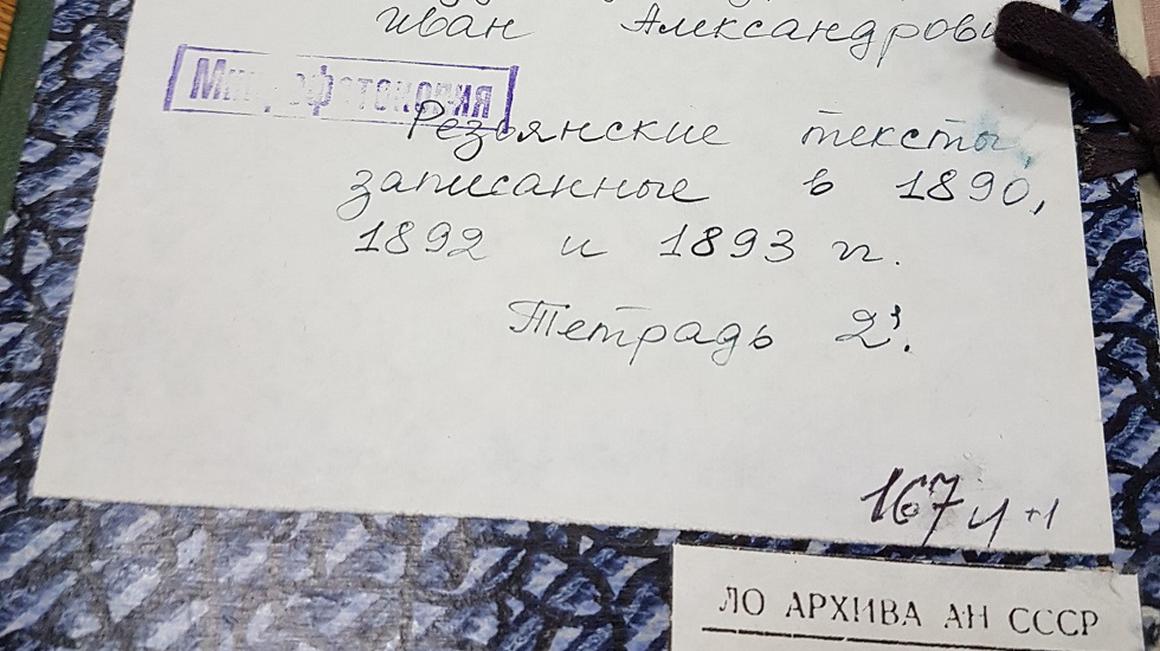 Иван Александрови
Микрофотокопия
Резьянские тексты,
записанные в 1890,
1892 и 1893 гг.
Тетрадь 2.
167 +1
ЛО АРХИВА АН СССР